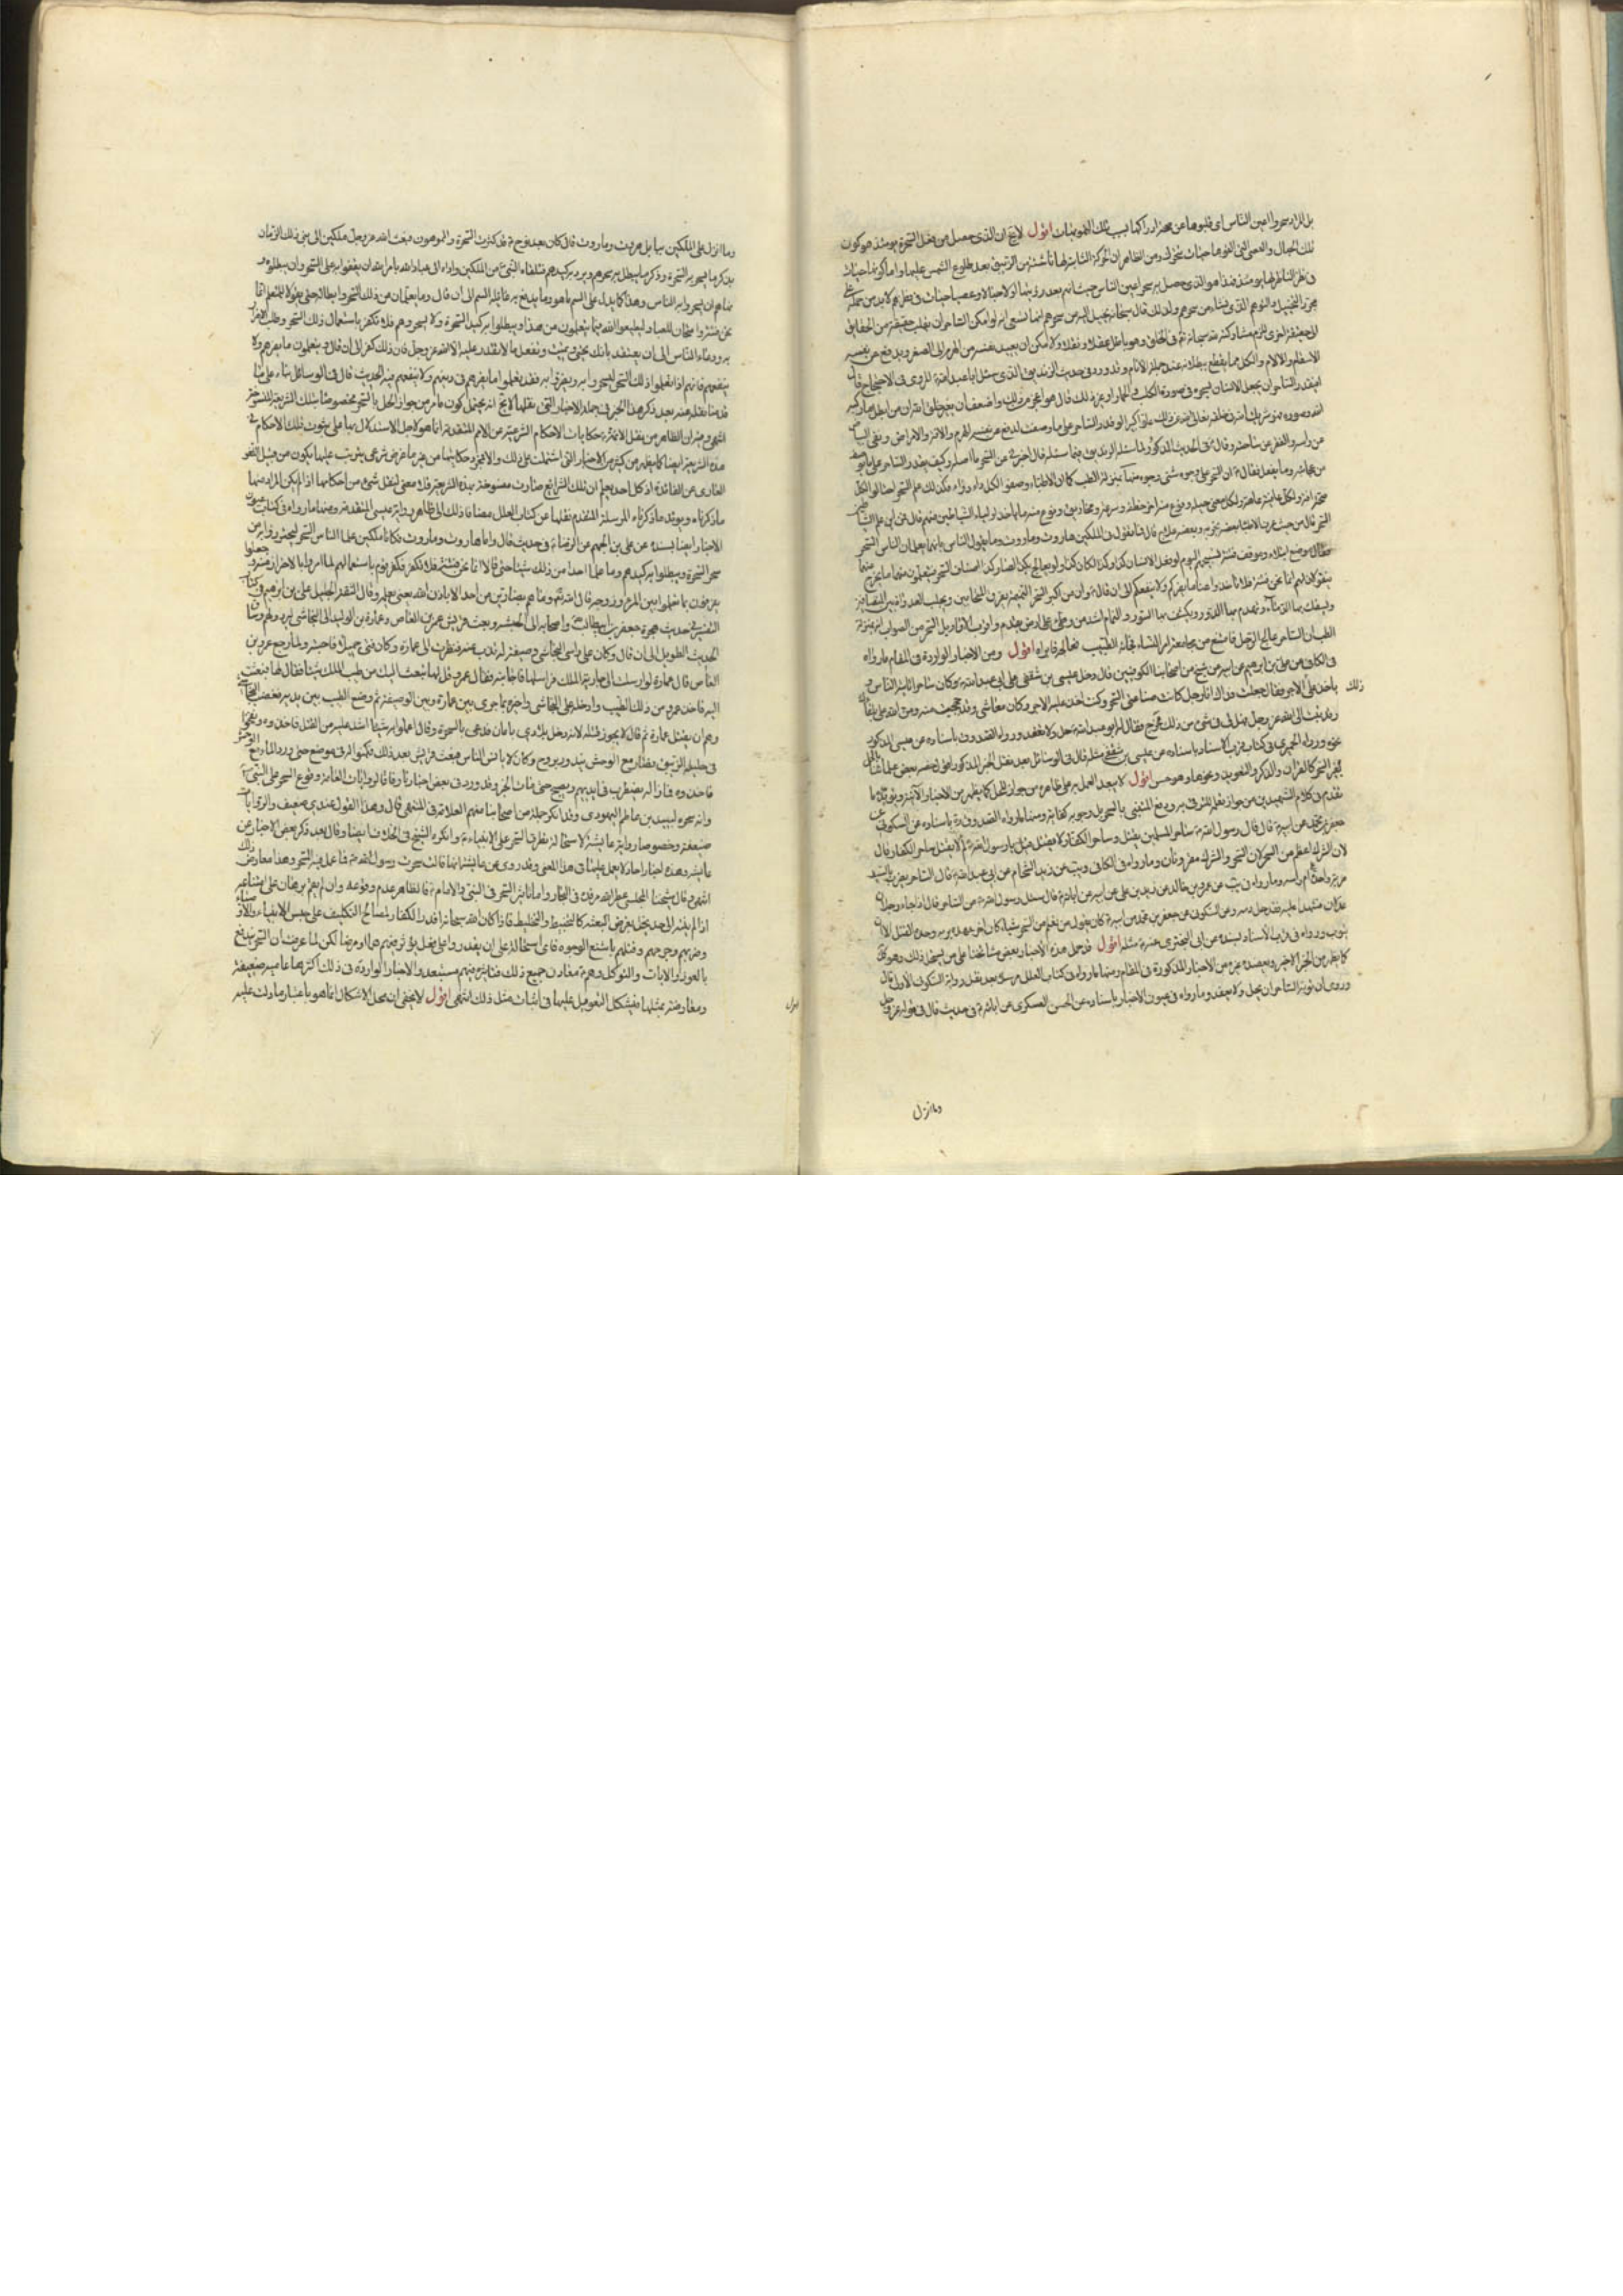 بل المراد سحروا اعين الناس اى قلبوها عن صحة ادراكها بسبب تلك التمويهات اقول لا يخ ان الذى حصل من فعل السحرة يومئذ هو كون
تلك الحبال والعصى التى القوها حيات تتحرك ومن الظاهر ان الحركة الثابتة لها ناشئة من الزيبق بعد طلوع الشمس عليها واما كونها حيات
فى نظر الناظر لها يومئذ فهذا هو الذى حصل به سحر اعين الناس حيث انهم بعد رؤيتها اولا حبالا وعصيا حيات فى نظرهم لا بد من حمله على
مجرد التخييل والتوهم الذى نشاء من سحرهم ولذلك قال سبحانه يخيل اليه من سحرهم انها تسعى اذ لو امكن الساحر ان يقلب حقيقة من الحقايق
الى حقيقة اخرى لزم مشاركته لله سبحانه فى الخلق وهو باطل عقلا ونقلا ولا مكن ان يعيد نفسه من الهرم الى الصغر ويدفع عن نفسه
الاسقام والالام والكل مما يقطع ببطلانه عند جملة الانام وقد ورد فى حديث الزنديق الذى سئل ابا عبد الله المروى فى الاحتجاج قال
افيقدر الساحر ان يجعل الانسان بسحره فى صورة الكلب والحمار او غير ذلك قال هو اعجز من ذلك واضعف ان يغير خلق الله ان من ابطل ما ركبه
الله وصوره فهو شريك لله فى خلقه تعالى الله عن ذلك علوا كبيرا لو قدر الساحر على ما وصفت لدفع عن نفسه الهرم والافة والامراض ونفى البياض
عن راسه والفقر عن ساحته وقال فى الحديث المذكور لما سئله الزنديق فيما سئله قال اخبرنى عن السحر ما اصله وكيف يقدر الساحر على ما يوصف
من عجائبه وما يفعل فقال ان السحر على وجوه شتى وجوه منها بمنزلة الطب كما ان الاطباء وضعوا لكل داء دواء فكذلك علم السحر احتالوا لكل
صحة افة ولكل عافية عاهة ولكل معنى حيلة ونوع منه اخر خطفة وسرعة ومخاريق ونوع منه ما ياخذ اولياء الشياطين منهم قال فمن اين علم الشياطين
السحر قال من حيث عرف الاطباء الطب بعضه تجربه وبعضه علاج قال فما تقول فى الملكين هاروت وماروت وما يقول الناس بانهما يعلمان الناس السحر
فقال موضع ابتلاء وموقف فتنة تسبيحهم اليوم لو فعل الانسان كذا وكذا لكان كذا ولو يعالج بكذا لصار كذا اصناف السحر فيتعلمون منهما ما يخرج عنهما
فيقولان لهم انما نحن فتنة فلا تاخذوا عنا ما يضركم ولا ينفعكم الى ان قال وان من اكبر السحر النميمة يفرق بها بين المتحابين ويجلب العداوة بين المتصافين
ويسفك بها الدماء ويهدم بها الدور ويكشف بها الستور والنمام اشد من وطئ على ارض بقدم واقرب اقاويل السحر من الصواب انه بمنزلة
الطب ان الساحر عالج الرجل فامتنع من مجامعة النساء فجائه الطبيب فعالجه فابراه اقول ومن الاخبار الواردة فى المقام ما رواه
فى الكافى عن على بن ابرهيم عن ابيه عن شيخ من اصحابنا الكوفيين قال دخل عيسى بن شقفى على ابى عبد الله وكان ساحرا ياتيه الناس و
ياخذ على ذلك الاجر فقال له جعلت فداك انا رجل كانت صناعتى السحر وكنت اخذ عليه الاجر وكان معاشى وقد حججت منه ومن الله على بلقائك
وقد تبت الى الله عز وجل فهل لى فى شئ من ذلك مخرج فقال له ابو عبد الله حل ولا تعقد ورواه الصدوق باسناده عن عيسى المذكور
نحوه ورواه الحميرى فى كتاب قرب الاسناد باسناده عن عيسى بن شقفى مثله قال فى الوسائل بعد نقل الخبر المذكور اقول خصه بعض علمائنا بالحل
بغير السحر كالقران والذكر والتعويذ ونحوها وهو حسن اقول لا يبعد العمل به على ظاهره من جواز الحل كما يظهر من الاخبار الاتية ويؤيده ما
تقدم فى كلام الشهيدين من جواز تعلمه للتوقى به ودفع المتنبى بالسحر بل وجوبه كفاية ومنها ما رواه الصدوق ره باسناده عن السكونى عن
جعفر بن محمد عن ابيه قال قال رسول الله ساحر المسلمين يقتل وساحر الكفار لا يقتل قيل يا رسول الله لم لا يقتل ساحر الكفار قال
لان الشرك اعظم من السحر لان السحر والشرك مقرونان وما رواه فى الكافى ويب عن زيد الشحام عن ابى عبد الله قال الساحر يضرب بالسيف
ضربة واحدة ام راسه وما رواه فى يب عن عمرو بن خالد عن زيد بن على عن ابيه عن ابائه قال سئل رسول الله عن الساحر فقال اذا جاء رجلان
عدلان فشهدا عليه فقد حل دمه وعن السكونى عن جعفر بن محمد عن ابيه كان يقول من تعلم من السحر شيئا كان اخر عهده بربه وحده القتل الا ان
يتوب ورواه فى قرب الاسناد بسنده عن ابى البخترى عنه مثله اقول قد حمل هذه الاخبار بعض مشائخنا على من يستحل ذلك وهو كك
كما يظهر من الخبر الاخير ويعضده غيره من الاخبار المذكورة فى المقام ومنها ما رواه فى كتاب العلل مرسلا بعد نقل رواية السكونى الاولى قال
وروى ان توبة الساحر ان يحل ولا يعقد وما رواه فى عيون الاخبار باسناده عن الحسن العسكرى عن ابائه فى حديث قال فى قوله عز وجل
وما انزل
وما انزل على الملكين ببابل هروت وماروت قال كان بعد نوح قد كثرت السحرة والمموهون فبعث الله عز وجل ملكين الى نبى ذلك الزمان
بذكر ما يسحر به السحرة وذكر ما يبطل به سحرهم ويرد به كيدهم فتلقاه النبى عن الملكين واداه الى عباد الله بامر الله ان يقفوا به على السحر وان يبطلوه و
نهاهم ان يسحروا به الناس وهذا كما يدل على السم ما هو وما يدفع به غائلة السم الى ان قال وما يعلمان من ذلك السحر وابطاله حتى يقولا للمتعلم انما
نحن فتنة وامتحان للعباد ليطيعوا الله فيما يتعلمون من هذا ويبطلوا به كيد السحرة ولا يسحروهم فلا تكفر باستعمال ذلك السحر وطلب الاضرار
به ودعاء الناس الى ان يعتقدوا بانك تحيى وتميت وتفعل ما لا يقدر عليه الا الله عز وجل فان ذلك كفر الى ان قال ويتعلمون ما يضرهم ولا
ينفعهم فانهم اذا تعلموا ذلك السحر ليسحروا به ويضروا به فقد تعلموا ما يضرهم فى دينهم ولا ينفعهم فيه الحديث قال فى الوسائل بناء على ما
قدمنا نقله عنه بعد ذكر هذا الخبر فى جملة الاخبار التى نقلها لا يخ انه يحتمل كون ما مر من جواز الحل بالسحر مخصوصا بتلك الشريعة المنسوخة
انتهى وفيه ان الظاهر من نقل الائمة حكايات الاحكام الشرعية عن الامم المتقدمة انما هو لاجل الاستدلال بها على ثبوت تلك الاحكام فى
هذه الشريعة ايضا كما يظهر من كثير من الاخبار التى اشتملت على ذلك والا فمجرد حكايتها من غير ما غرض شرعى يترتب عليها يكون من قبيل اللغو
العارى عن الفائدة اذ كل احد يعلم ان تلك الشرائع صارت منسوخة بهذه الشريعة فلا معنى لنقل شئ من احكامها اذا لم يكن المراد منها
ما ذكرناه ويؤيد ما ذكرناه المرسلة المتقدم نقلها عن كتاب العلل مضافا ذلك الى ظاهر رواية عيسى المتقدمة ومنها ما رواه فى كتاب عيون
الاخبار ايضا بسنده عن على بن الجهم عن الرضا فى حديث قال واما هاروت وماروت فكانا ملكين علما الناس السحر ليحترزوا به من
سحر السحرة ويبطلوا به كيدهم وما علما احدا من ذلك شيئا حتى قالا انما نحن فتنة فلا تكفر فكفر قوم باستعمالهم لما امروا بالاحتراز منه وجعلوا
يفرقون بما تعلموا بين المرء وزوجه قال الله تعالى وما هم بضارين به من احد الا باذن الله يعنى بعلمه وقال الثقة الجليل على بن ابرهيم فى كتاب
التفسير فى حديث هجرة جعفر بن ابيطالب واصحابه الى الحبشه وبعث قريش عمر بن العاص وعمارة بن الوليد الى النجاشى ليردوهم وساق
الحديث الطويل الى ان قال وكان على راس النجاشى وصيفة له تذب عنه فنظرت الى عمارة وكان فتى جميلا فاحبته ولما رجع عمرو بن
العاص قال عمارة لو ارسلت الى جارية الملك فراسلها فاجابته فقال عمرو قل لها تبعث اليك من طيب الملك شيئا فقال لها فبعثت
اليه فاخذ عمرو من ذلك الطيب وادخله على النجاشى واخبره بما جرى بين عمارة وبين الوصيفة ثم وضع الطيب بين يديه فغضب النجاشى
وهم ان يقتل عمارة ثم قال لا يجوز قتله لانه دخل بلادى بامان فدعى بالسحرة وقال اعملوا به شيئا اشد عليه من القتل فاخذوه ونفخوا
فى احليله الزيبق فصار مع الوحش يغد ويروح وكان لا يانس الناس فبعث قريش بعد ذلك فكمنوا له فى موضع حتى ورد الماء مع الوحش
فاخذوه فما زال يضطرب فى ايديهم ويصيح حتى مات الخبر وقد ورد فى بعض اخبارنا وفاقا لروايات العامة وقوع السحر على النبى
وانه سحره لبيد بن عاصم اليهودى وقد انكره جملة من اصحابنا منهم العلامة فى المنتهى قال وهذا القول عندى ضعيف والروايات
ضعيفة وخصوصا رواية عايشة لاستحالة تطرق السحر على الانبياء وانكره الشيخ فى الخلاف ايضا وقال بعد ذكر بعض الاخبار عن
عايشة وهذه اخبار احاد لا يعمل عليها فى هذا المعنى وقد روى عن عايشة انها قالت سحرت رسول الله فما عمل فيه السحر وهذا معارض ذلك
انتهى وقال شيخنا المجلسى عطر الله مرقده فى البحار واما تاثير السحر فى النبى والامام فالظاهر عدم وقوعه وان لم يقم برهان على امتناعه
اذا لم ينته الى حد يخل بغرض البعثة كالتخبيط والتخليط فاذا كان الله سبحانه اقدر الكفار لمصالح التكليف على حبس الانبياء والاوصياء
وضربهم وجرحهم وقتلهم باشنع الوجوه فاى استحالة على ان يقدروا على فعل يؤثر فيهم هما ومرضا لكن لما عرفت ان السحر يندفع
بالعوذ والايات والتوكل وهم معادن جميع ذلك فتاثيره فيهم مستبعد والاخبار الواردة فى ذلك اكثرها عامية ضعيفة
ومعارضة بمثلها فيشكل التعويل عليها فى اثبات مثل ذلك انتهى اقول لا يخفى ان محل الاشكال انما هو باعتبار ما دلت عليه